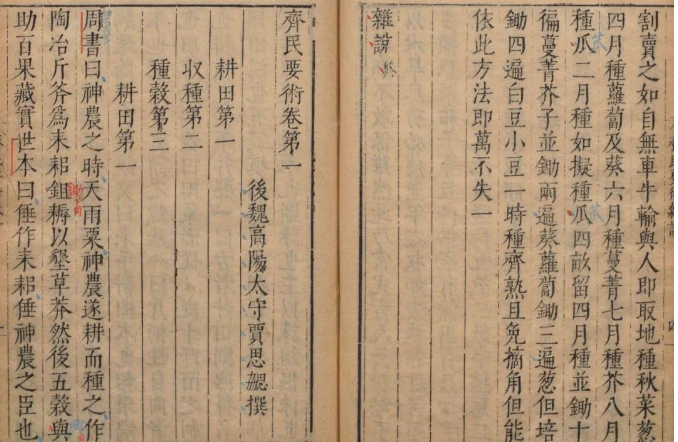 割賣之如自無車牛輸與人即取地種秋菜葱
四月種蘿蔔及葵六月種蔓菁七月種芥八月
種瓜二月種如擬種瓜四畝留四月種並鋤十
徧蔓菁芥子並鋤兩遍葵蘿蔔鋤三遍葱但培
鋤四遍白豆小豆一時種齊熟且免摘角但能
依此方法即萬不失一
雜說終
齊民要術卷第一
後魏高陽太守賈思勰撰
耕田第一
收種第二
種穀第三
耕田第一
周書曰神農之時天雨粟神農遂耕而種之作
陶冶斤斧為耒耜鉏耨以墾草莽然後五穀與
助百果藏實世本曰倕作耒耜倕神農之臣也